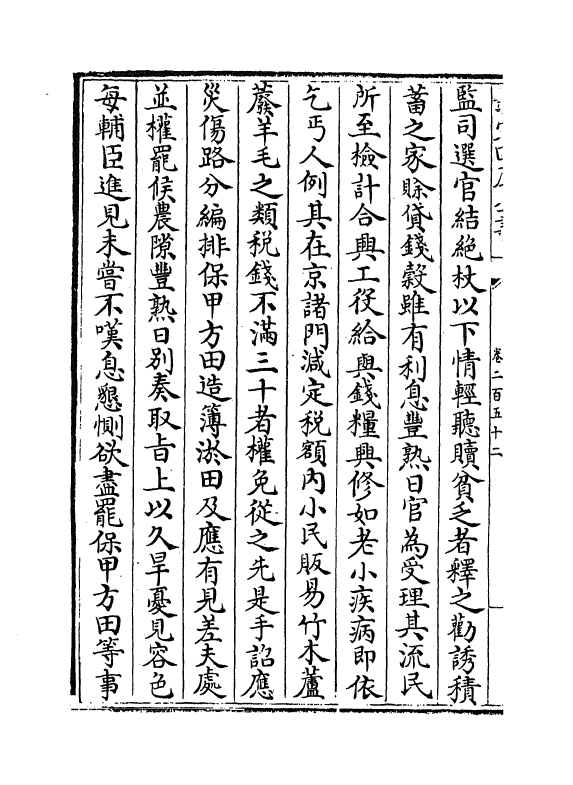 卷二百五十二
監司選官結絶杖以下情輕聽贖貧乏者釋之勸誘積
蓄之家賒貸錢糓雖有利息豐熟日官為受理其流民
所至檢計合興工役給與錢糧興修如老小疾病即依
乞丐人例其在京諸門減定税額内小民販易竹木蘆
䕠羊毛之類税錢不滿三十者權免從之先是手詔應
災傷路分編排保甲方田造簿淤田及應有見差夫處
並權罷候農隙豐熟日別奏取旨上以久旱憂見容色
每輔臣進見未嘗不嘆息懇惻欲盡罷保甲方田等事